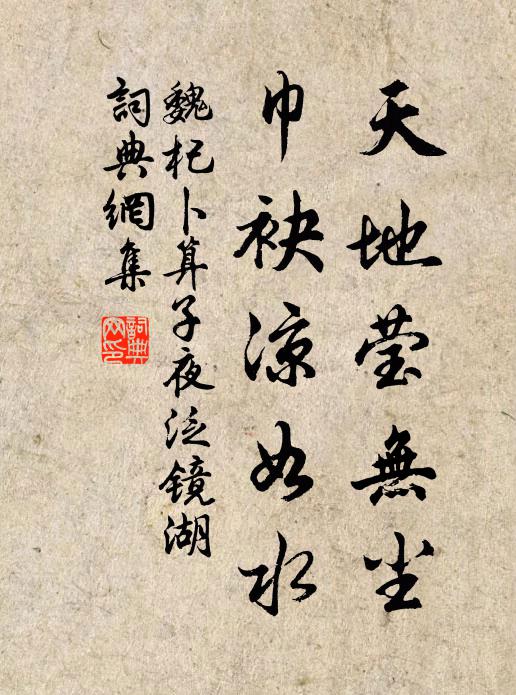 天地莹無尘
巾袂涼如水
魏杞卜算子夜泛镜湖
詞典網集
詞典
网印